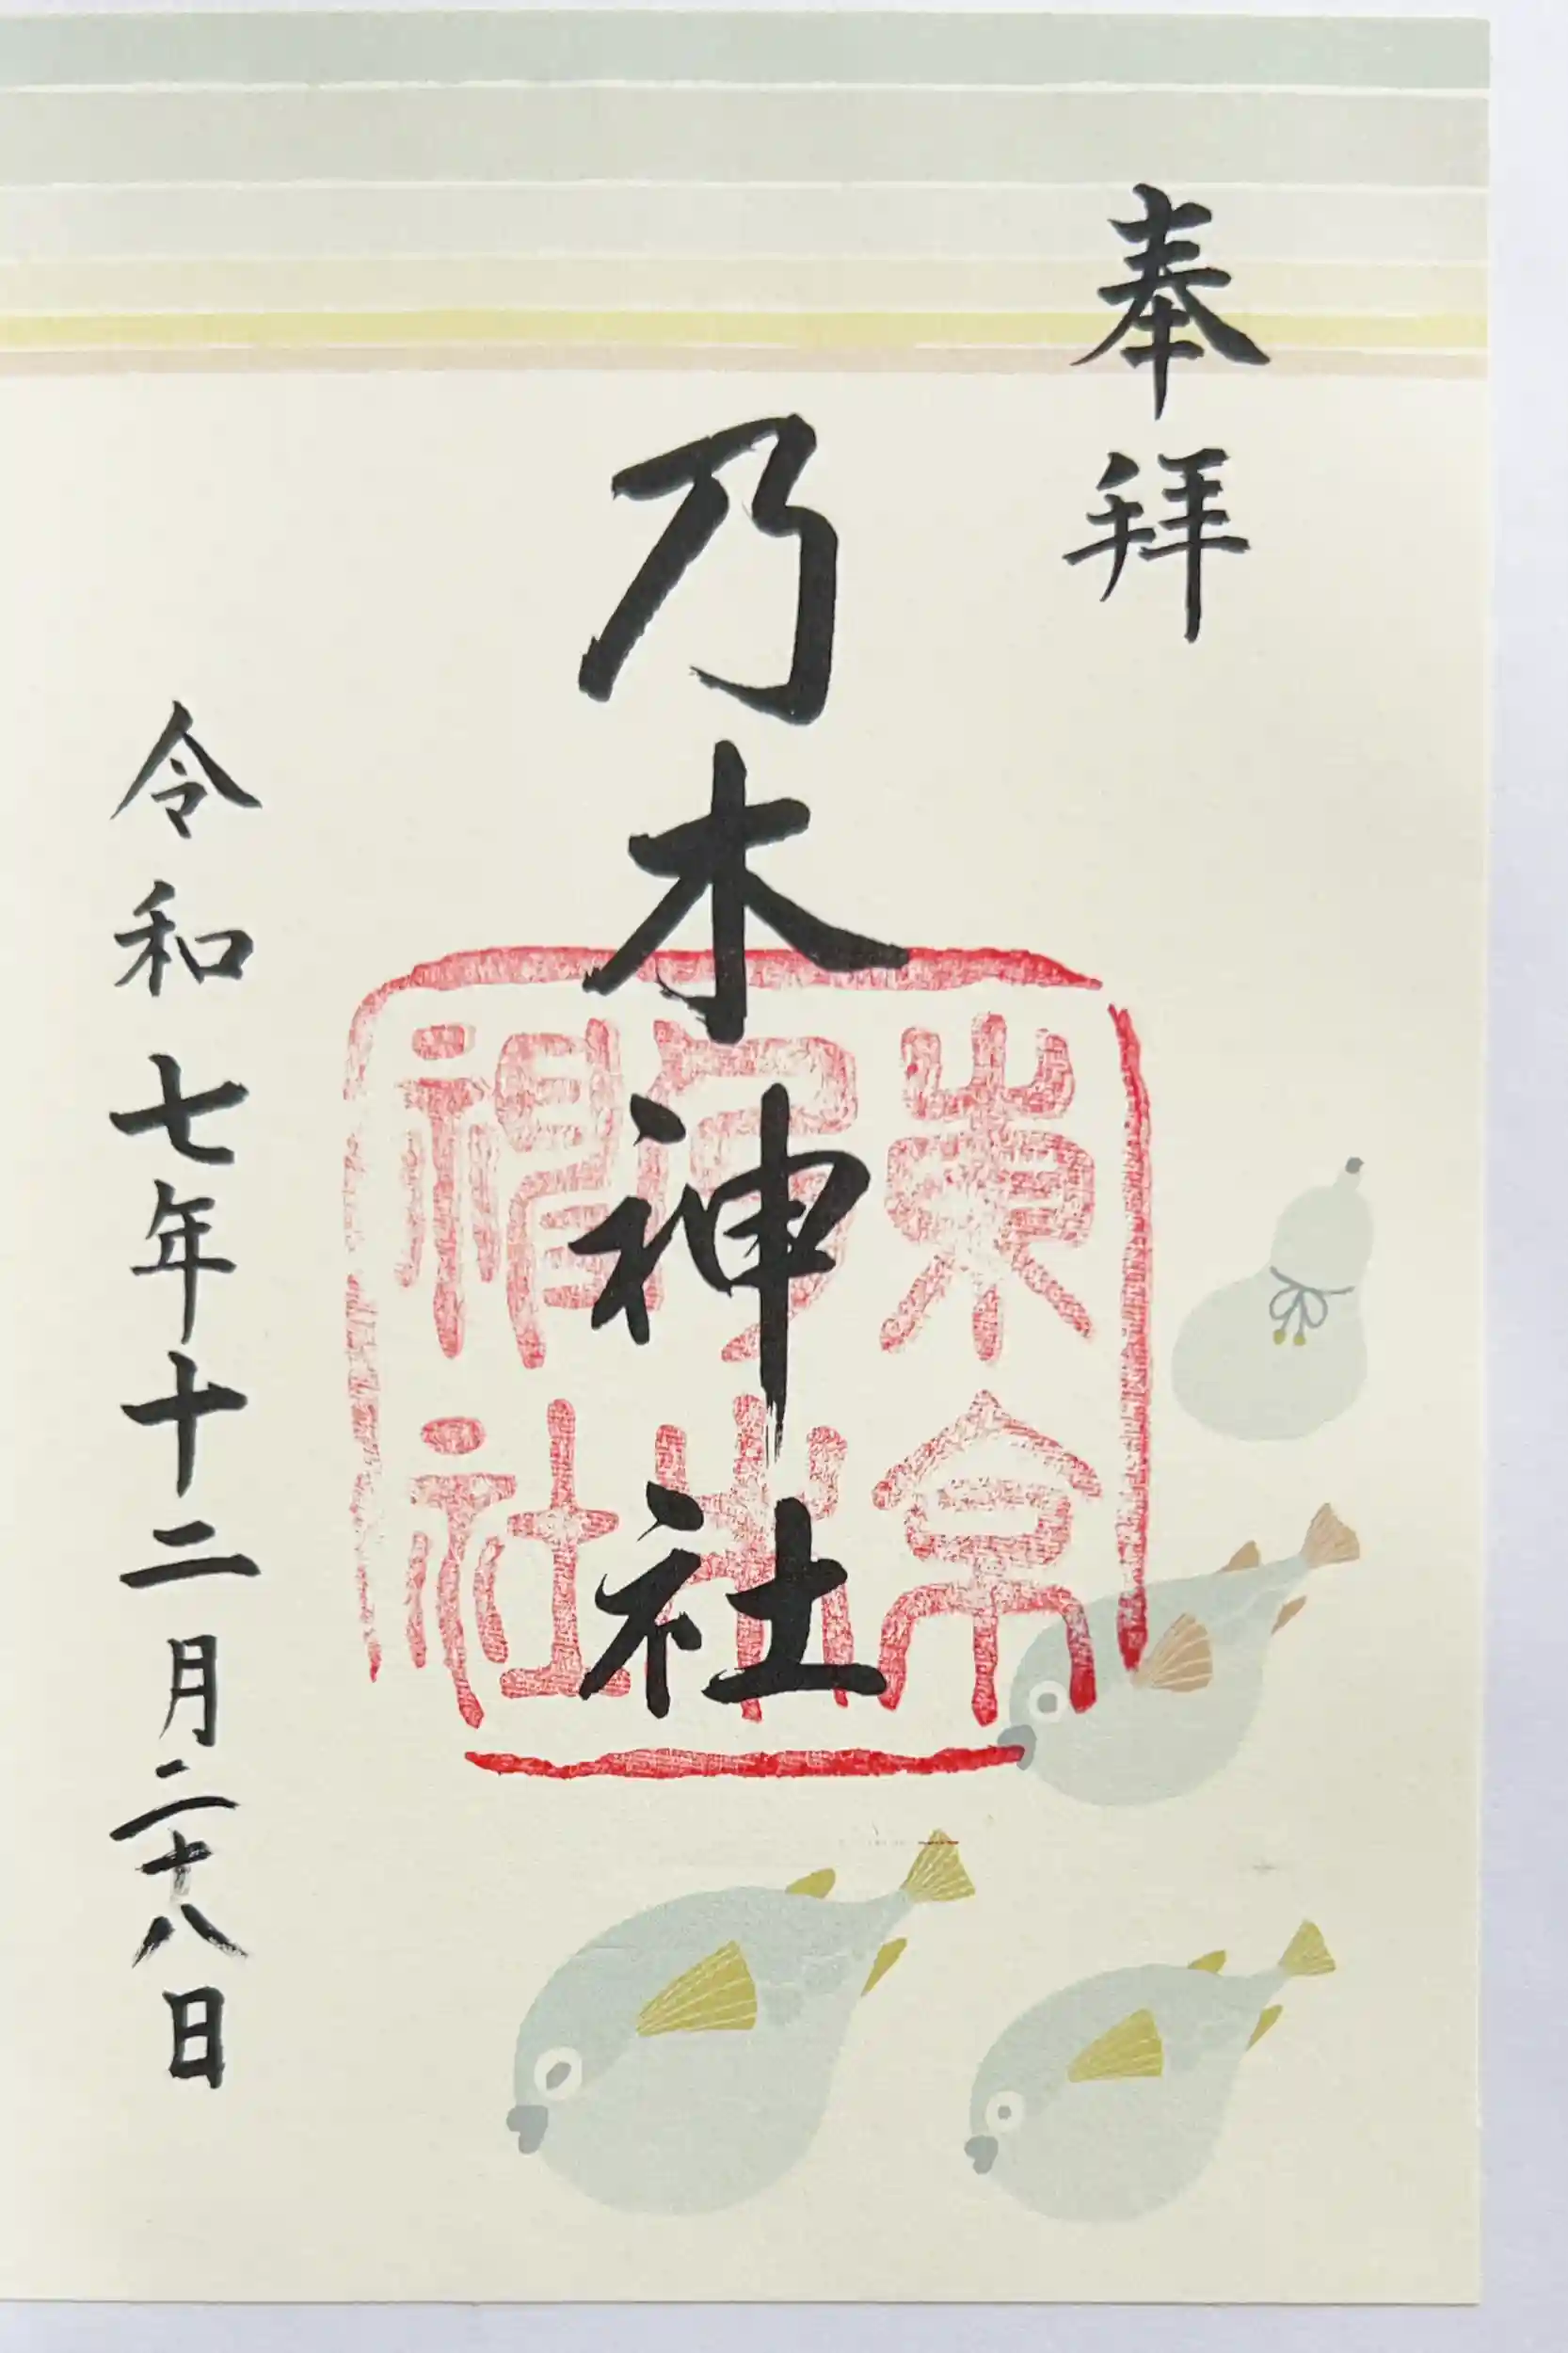 奉拝
乃木神社
東京
乃木
神社
令和七年十二月二十八日